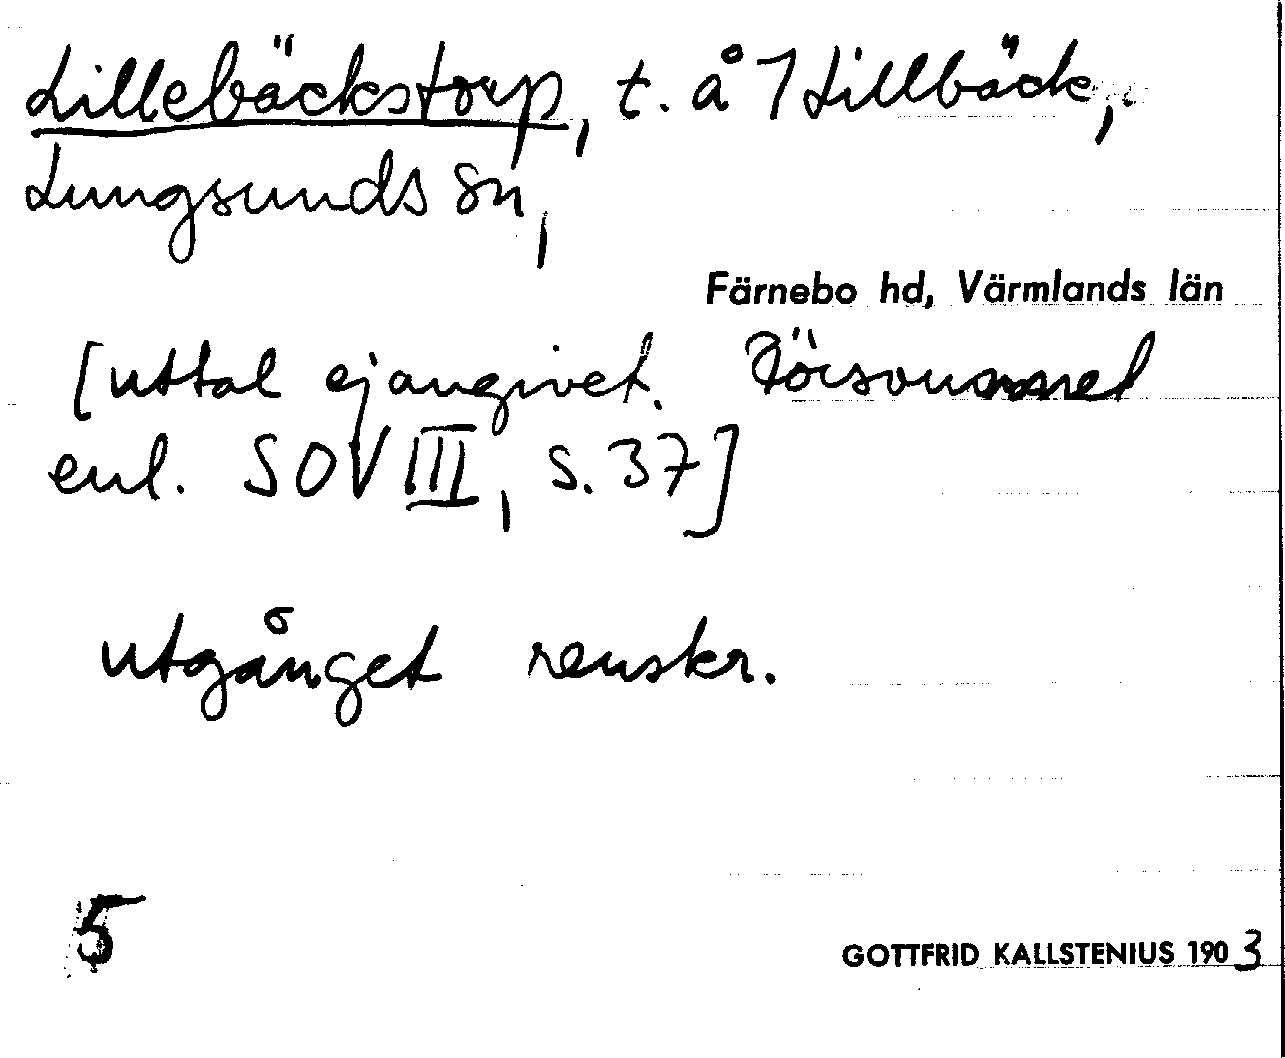 Lillebäckstorp, t. å 7 Lillbäck,
Lungsunds sn,
Färnebo hd, Värmlands län
[uttal ej angivet. Försvunnet
enl. SOV III, s. 37]
utgånget renskr.
5
GOTTFRID KALLSTENIUS 1903